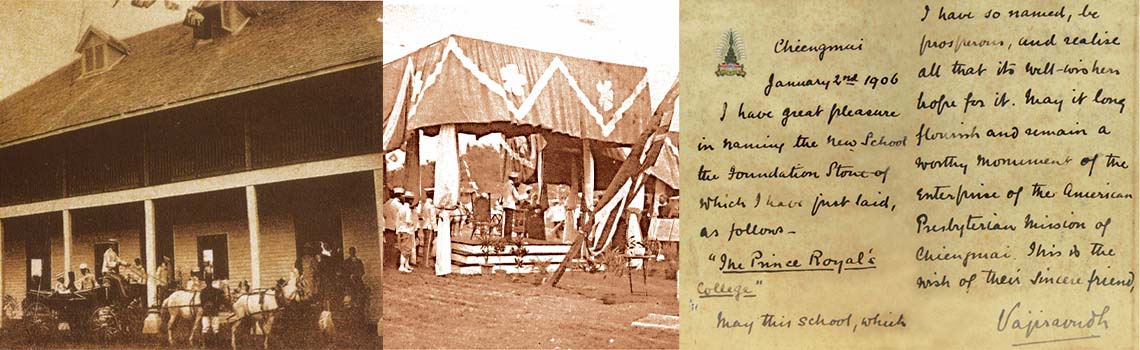 Chiengmai
January 2nd 1906
I have great pleasure
in naming the new School
the Foundation Stone of
which I have just laid,
as follows—
"The Prince Royal's
College"
"May this school, which
I have so named, be
prosperous, and realise
all that its well-wishers
hope for it. May it long
flourish and remain a
worthy monument of the
Enterprise of the American
Presbyterian Mission of
Chiengmai. This is the
wish of their sincere friend,
Vajiravudh